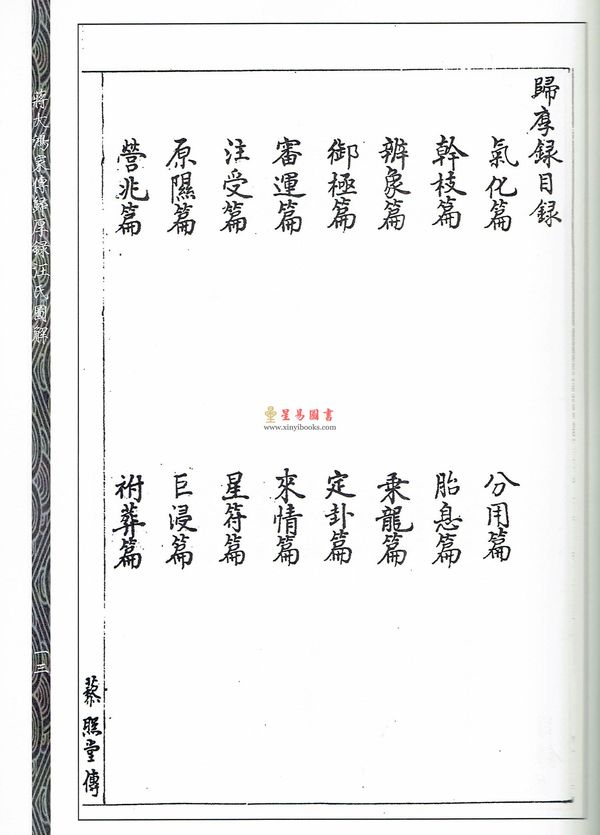 歸厚録目録
氣化篇
分用篇
幹枝篇
胎息篇
辨象篇
乘龍篇
御極篇
定卦篇
審運篇
來情篇
注受篇
星符篇
原隰篇
巨浸篇
營兆篇
祔葬篇
藜照堂傳
一三
星易圖書
www.xinyibooks.com